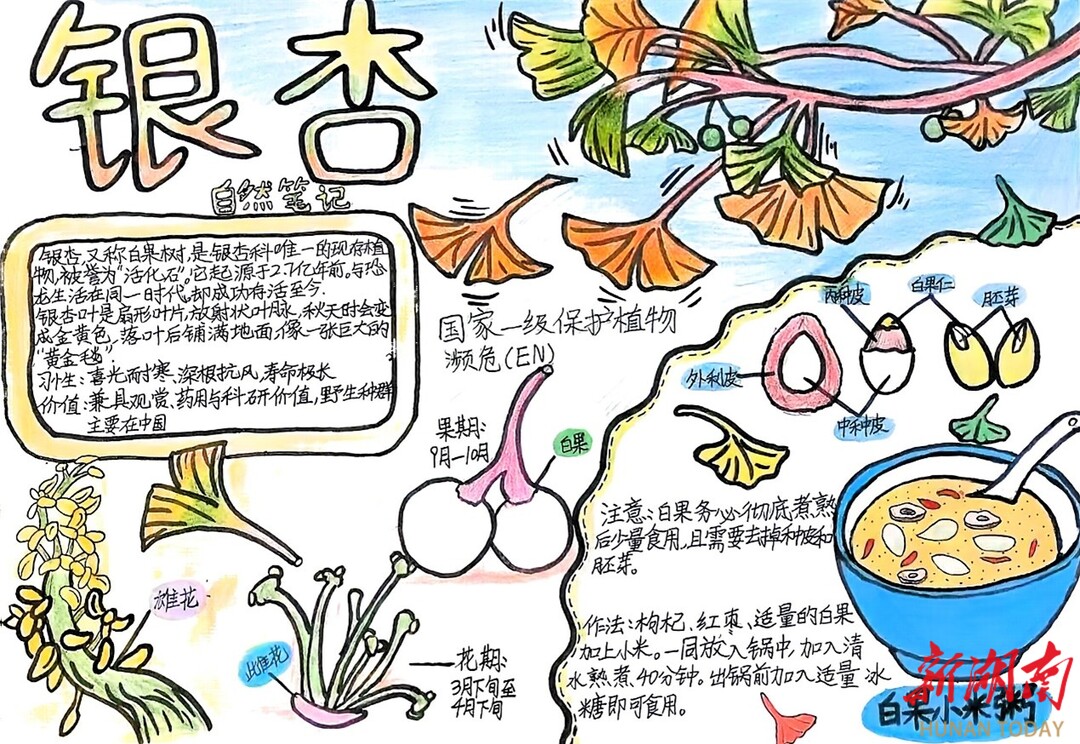 银杏
自然笔记
银杏,又称白果树,是银杏科唯一的现存植
物,被誉为“活化石”。它起源于2.7亿年前。与恐
龙生活在同一时代。却成功存活至今.
银杏叶是扇形叶片,放射状叶脉,秋天时会变
成金黄色,落叶后铺满地面,像一张巨大的
“黄金毯”
习性:喜光而耐寒,深根抗风,寿命极长
价值:兼具观赏、药用与科研价值,野生种群
主要在中国
国家一级保护植物
濒危(EN)
果期:
9月—10月
白果
雄花
雌花
花期:
3月下旬至
4月下旬
内种皮
白果仁
胚芽
外种皮
中种皮
注意:白果务必彻底煮熟
后少量食用,且需要去掉种皮和
胚芽。
作法:枸杞、红枣、适量的白果
加上小米。一同放入锅中,加入清
水熬煮,40分钟,出锅前加入适量冰
糖即可食用。
白果小米粥
新湖南
HUNAN TODAY